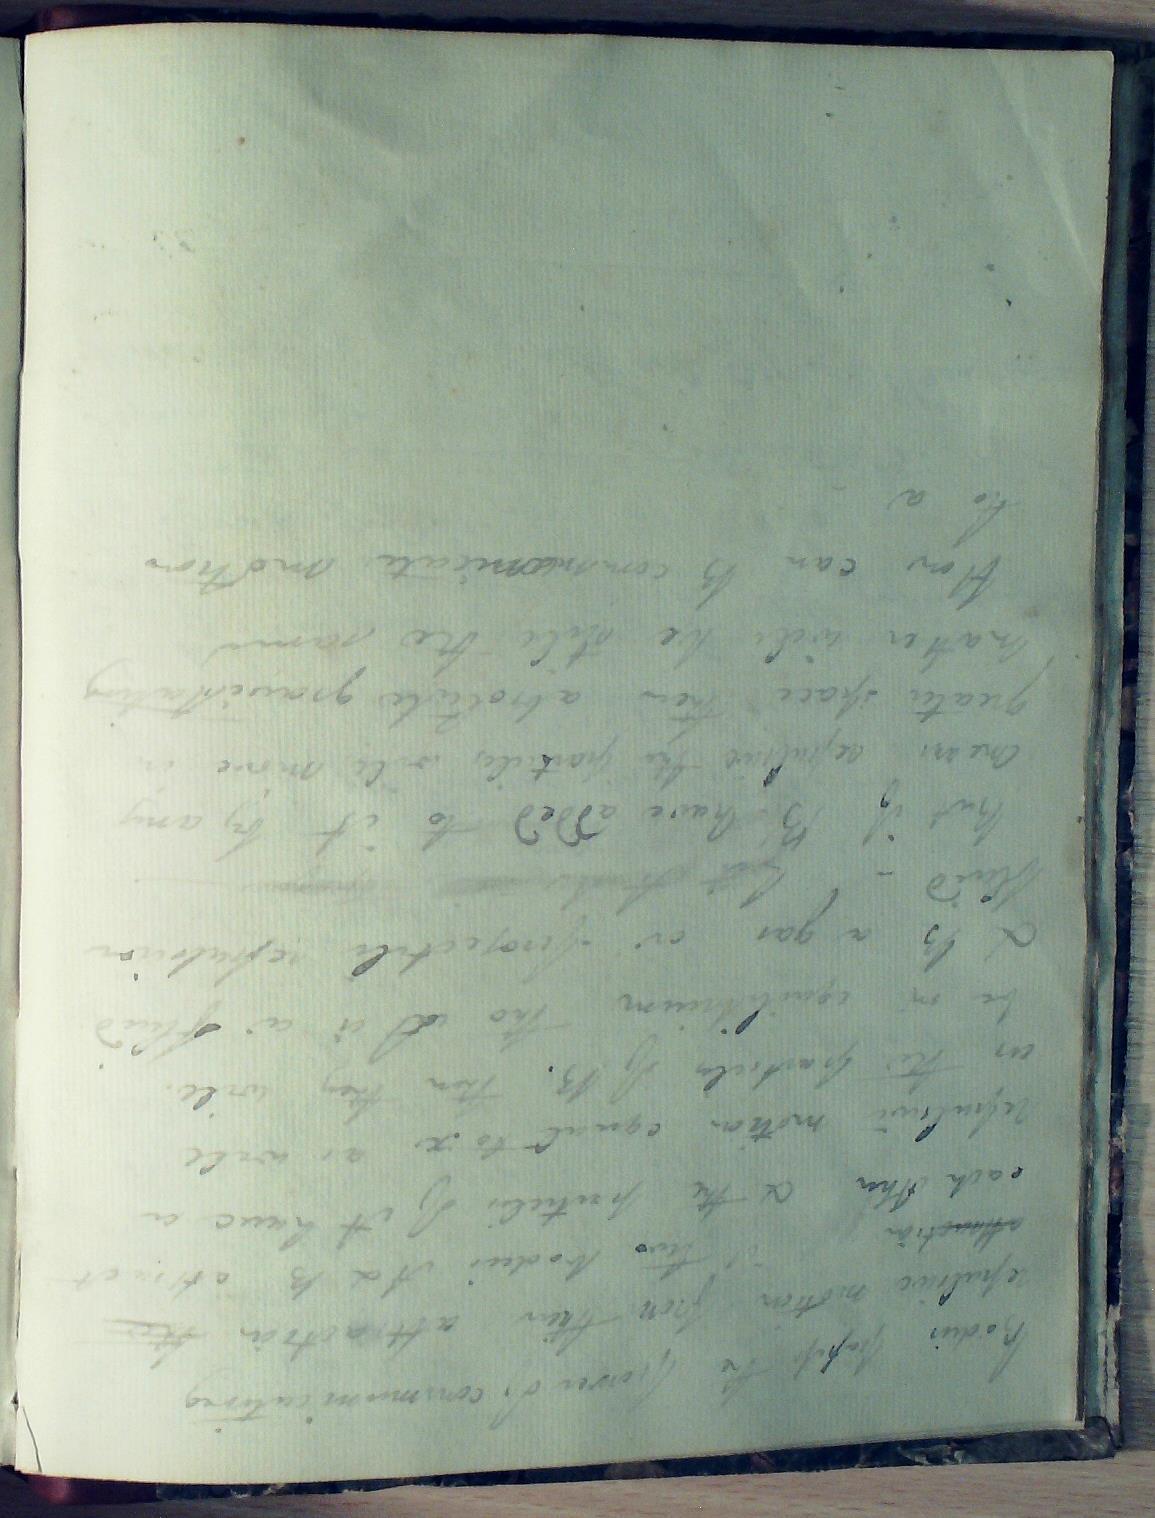 Bodies possess the power of communicating
repulsive motion from their attraction the
attraction if two bodies A & B attract
each other & the particles of it have a
repulsive motion equal to x as will
as the particles of B. then they will
be in equilibrium tho A is a fluid
& B a gas or projectile repulsion
fluid -
but if B have added to it by any
means repulsive the particles will move in
greater space then absolute gravitating
matter will be still the same
How can B communicate motion
to a -